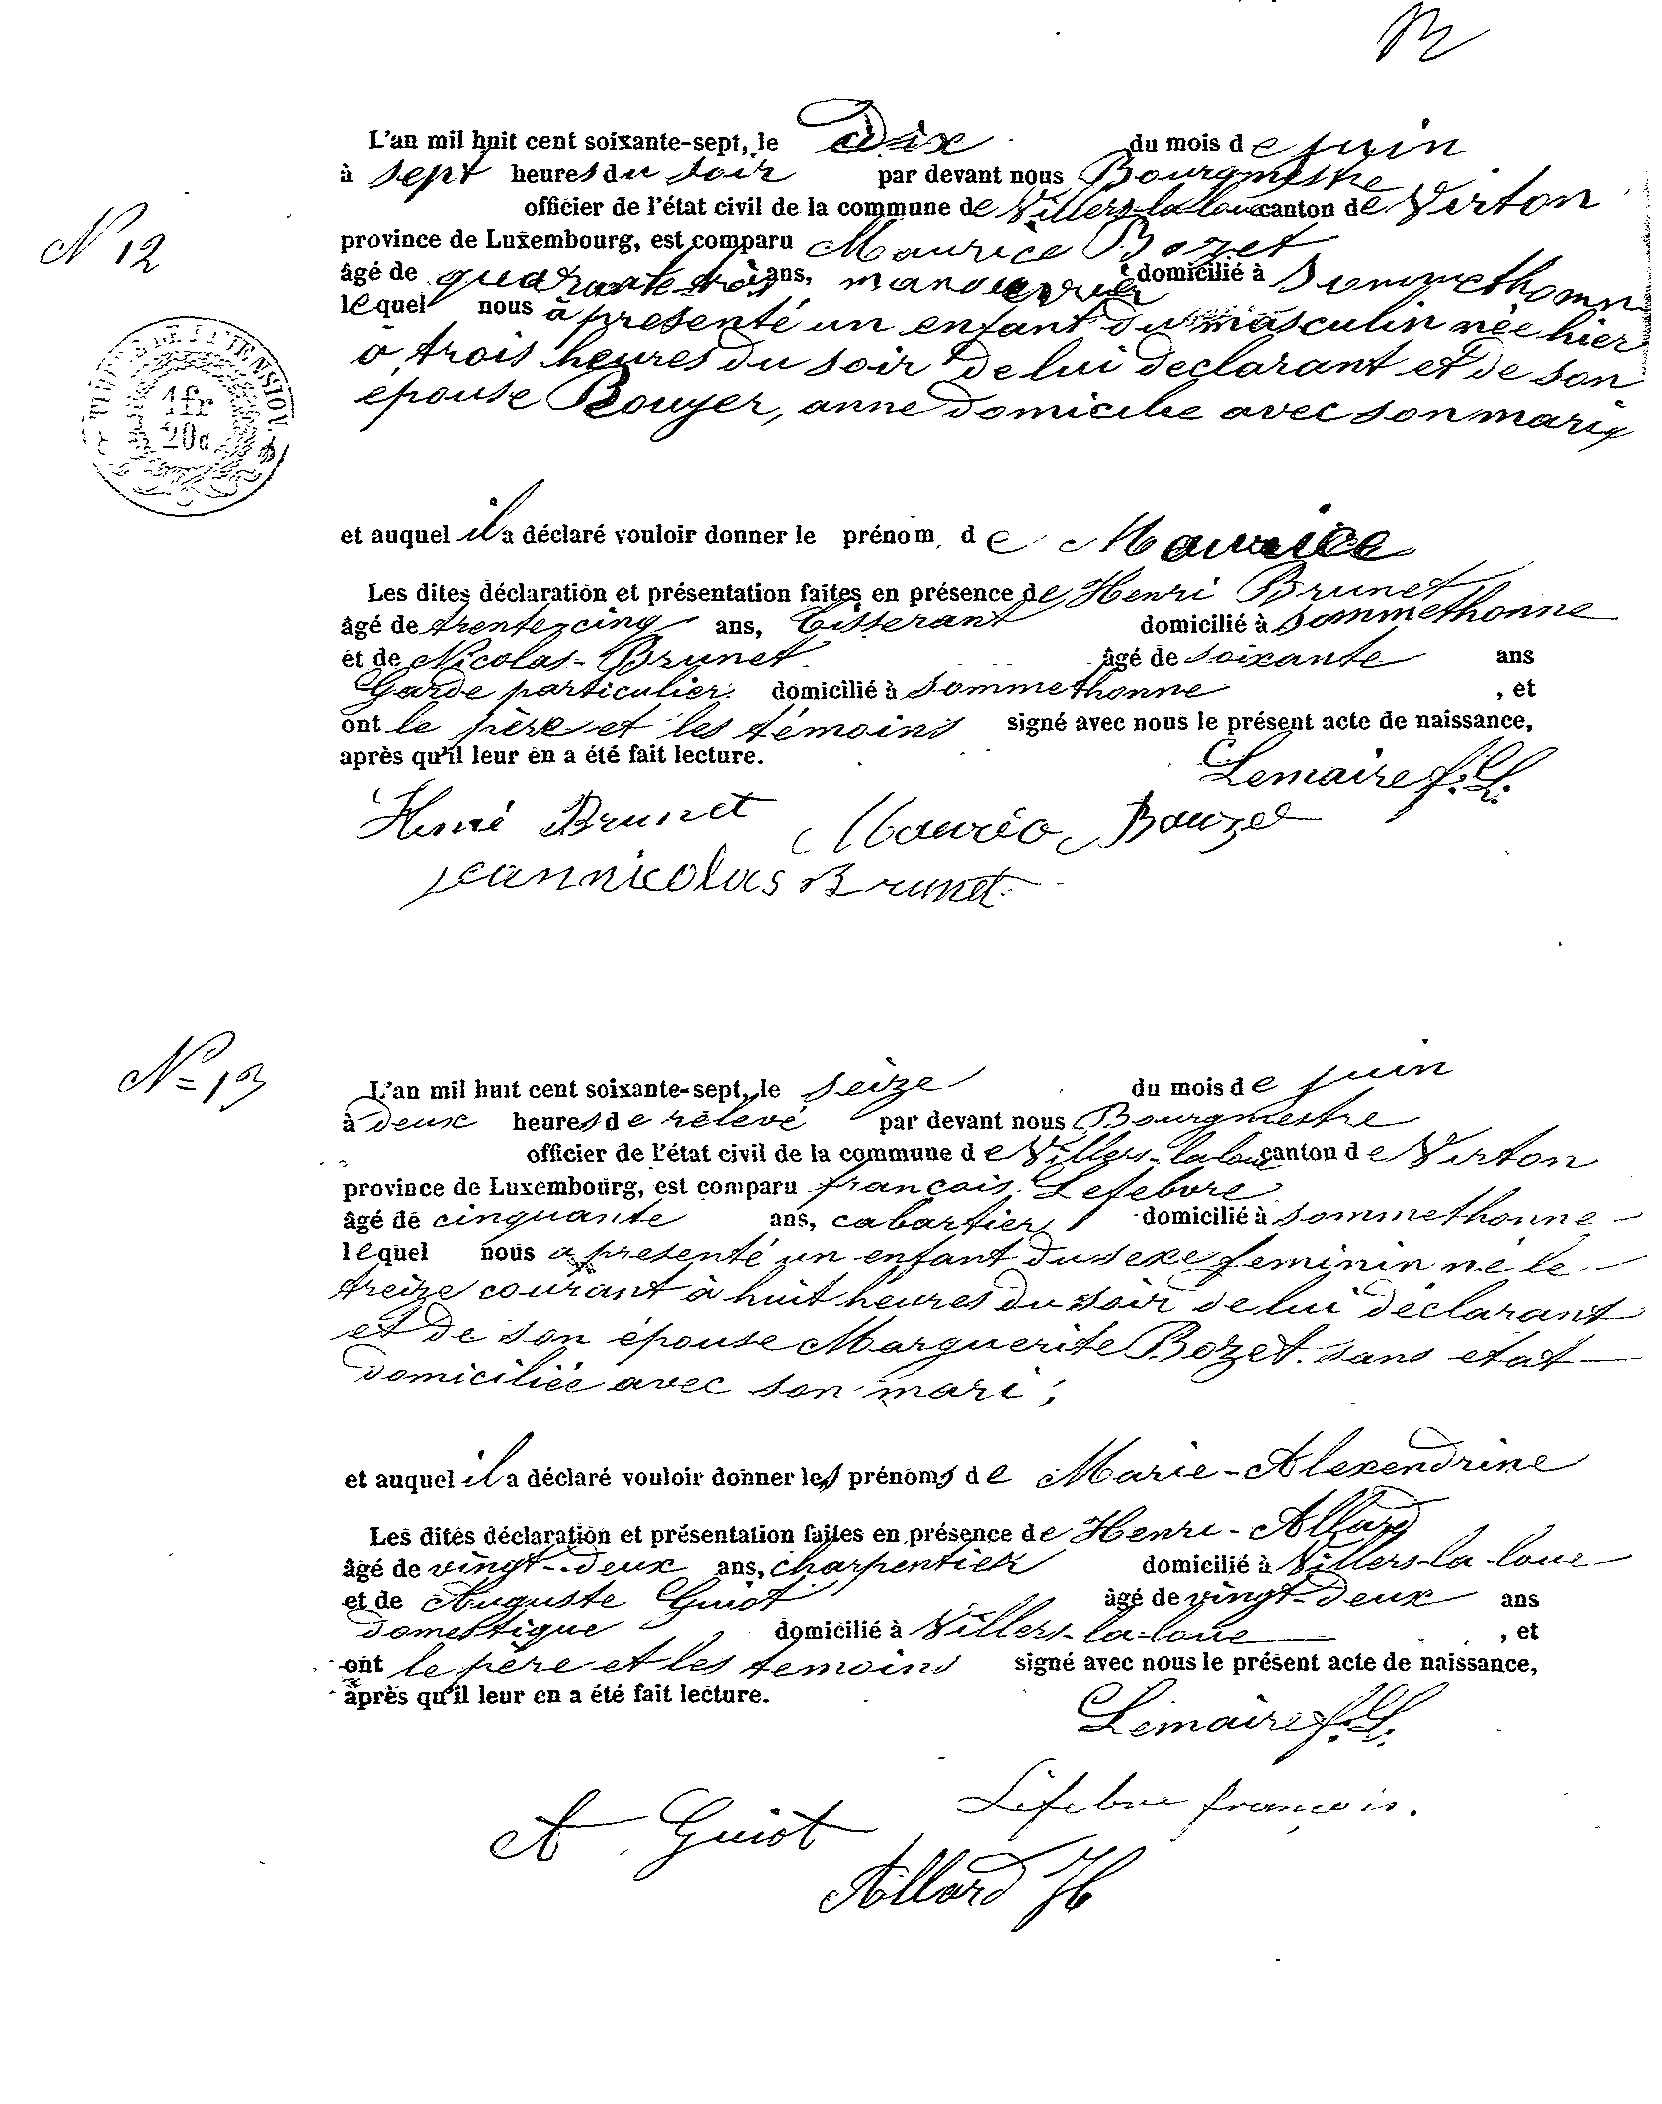 N 12
L'an mil huit cent soixante-sept, le Dix du mois de juin
à sept heures du soir par devant nous Bourgmestre
officier de l'état civil de la commune de Villers-la-loue canton de Virton
province de Luxembourg, est comparu Maurice Bozet
âgé de quarante trois ans, manouvrier domicilié à Sommethonn
lequel nous à presenté un enfant du masculin née hier
à trois heures du soir de lui declarant et de son
épouse Bouyer, anne domicilie avec son mari
1fr
20c
et auquel il a déclaré vouloir donner le prénom de Maurice
Les dites déclaration et présentation faites en présence de Henri Brunet
âgé de trente-cinq ans, Tisserant domicilié à Sommethonne
et de Nicolas-Brunet âgé de soixante ans
Garde particulier domicilié à Sommethonne , et
ont le père et les témoins signé avec nous le présent acte de naissance,
après qu'il leur en a été fait lecture.
Lemaire f. L.
Henri Brunet Bouzet
jeannicolas Brunet
N= 13
L'an mil huit cent soixante-sept, le seize du mois de juin
à deux heures de relevé par devant nous Bourgmestre
officier de l'état civil de la commune de Villers-la loue canton de Virton
province de Luxembourg, est comparu françois Lefebvre
âgé de cinquante ans, cabartier domicilié à Sommethonne
lequel nous a presenté un enfant du sexe feminin né le
treize courant à huit heures du soir de lui déclarant
et de son épouse Marguerite Bozet sans etat
domiciliée avec son mari ;
et auquel il a déclaré vouloir donner les prénoms de Marie-Alexendrine
Les dites déclaration et présentation faites en présence de Henri-Allard
âgé de vingt-deux ans, charpentier domicilié à Villers-la-loue
et de Auguste Guiot âgé de vingt-deux ans
domestique domicilié à Villers-la-loue , et
ont le père et les temoins signé avec nous le présent acte de naissance,
après qu'il leur en a été fait lecture.
Lemaire f. L.
Lefebvre françois.
A. Guiot
Allard H